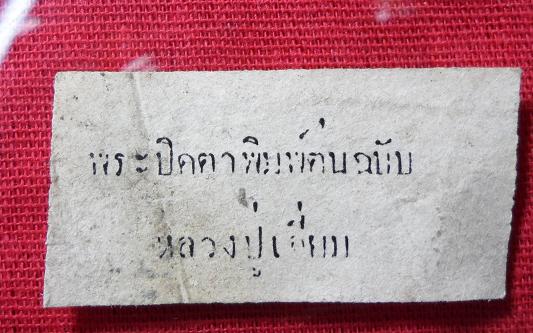 พระปิดตาพิมพ์ต้นฉบับ
หลวงปู่เอี่ยม